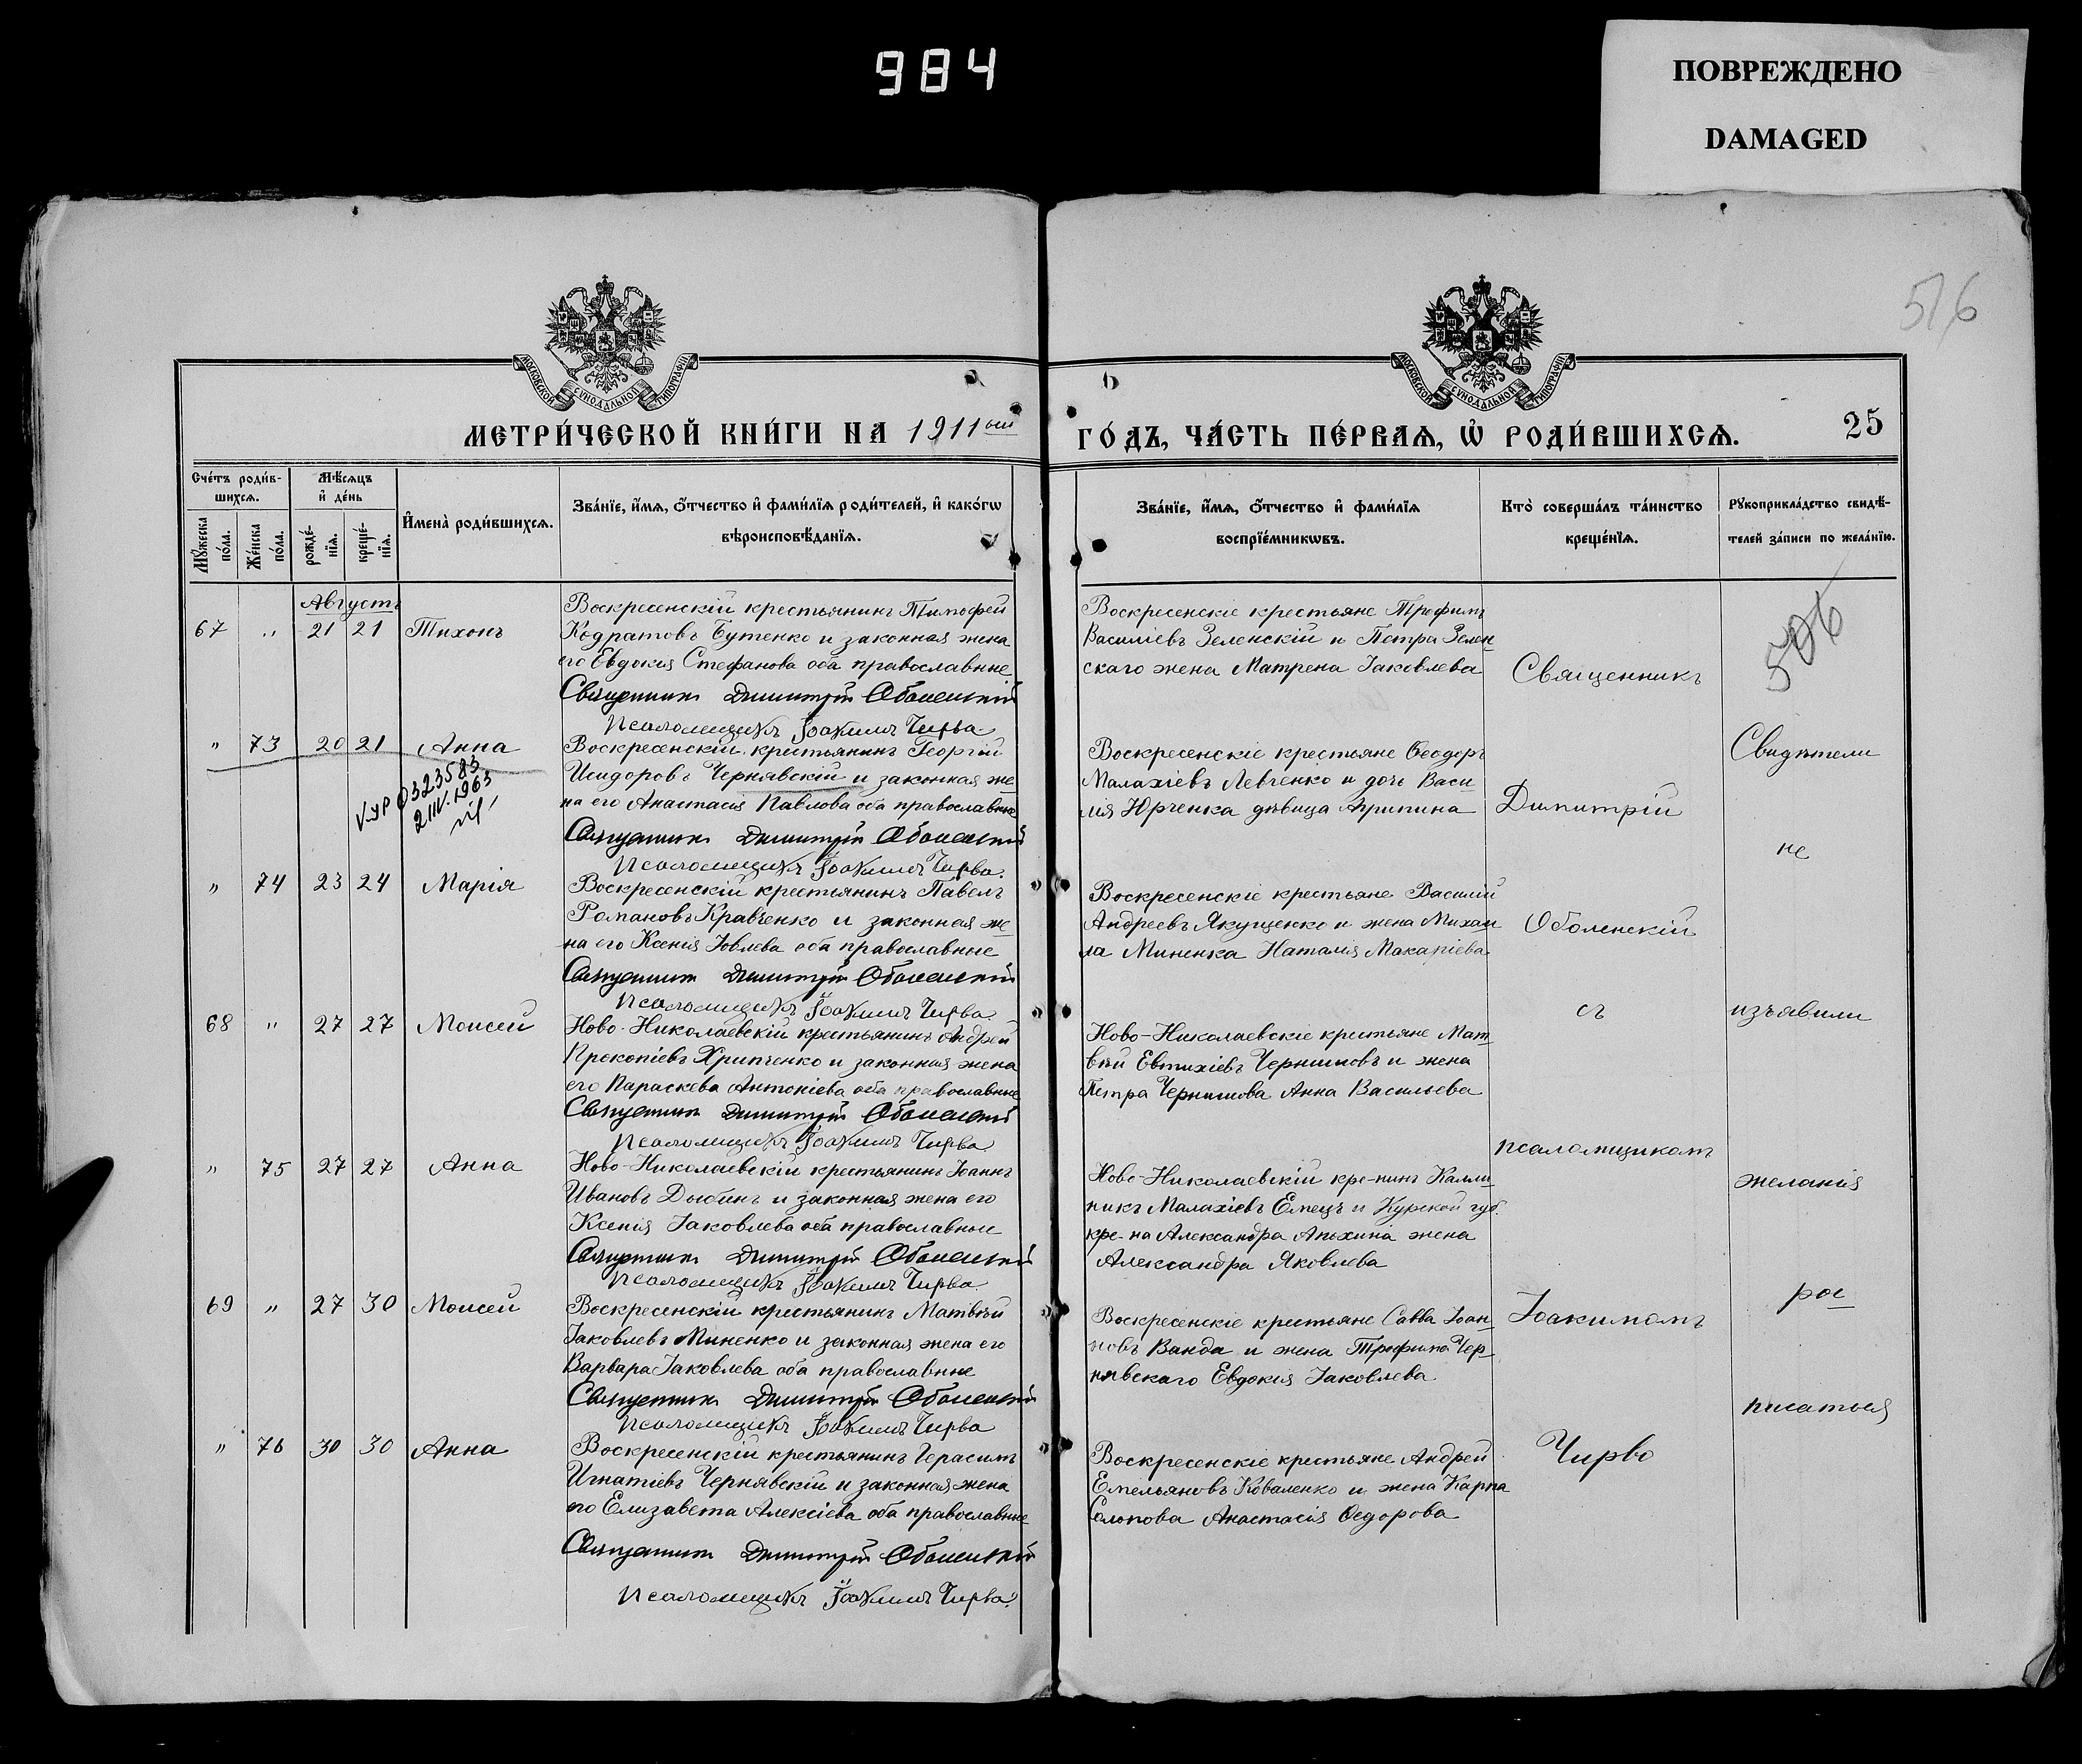 984
ПОВРЕЖДЕНО
DAMAGED
516
МОСКОВСКОЙ СѴНОДАЛЬНОЙ ТИПОГРАФІИ
МОСКОВСКОЙ СѴНОДАЛЬНОЙ ТИПОГРАФІИ
МЕТРИ́ЧЕСКОЙ КНИ́ГИ НА 1911ый
ГО́ДЪ, ЧА́СТЬ ПЕ́РВАЯ, Ѽ РОДИ́ВШИХСЯ.
25
Сче́тъ роди́в-
шихсѧ.
Мꙋ́жеска по́ла.
Же́нска по́ла.
Мѣ́сѧцъ
и҆ де́нь
рожде́-
нїѧ.
креще́-
нїѧ.
И҆мена̀ роди́вшихсѧ.
Зва́нїе, и҆́мѧ, ѻ҆́тчество и҆ фами́лїѧ роди́телей, и҆ како́гѡ
вѣроисповѣ́данїѧ.
Зва́нїе, и҆́мѧ, ѻ҆́тчество и҆ фами́лїѧ
воспрїе́мникѡвъ.
Кто̀ соверша́лъ та́инство
креще́нїѧ.
Рꙋкоприкла́дство свидѣ́-
телей за́писи по жела́нїю.
Августъ
67 " 21 21 Тихонъ
Воскресенскій крестьянинъ Тимофей
Кодратовъ Бутенко и законная жена
его Евдокія Стефанова оба православные
Священникъ Димитрій Оболенскій
Псаломщикъ Іоакимъ Чирва
Воскресенскіе крестьяне Трофимъ
Василіевъ Зеленскій и Петра Зелен-
скаго жена Матрена Іаковлева
" 73 20 21 Анна
0323583
1963
Воскресенскій крестьянинъ Георгій
Исидоровъ Чернявскій и законная же-
на его Анастасія Павлова оба православные
Священникъ Димитрій Оболенскій
Псаломщикъ Іоакимъ Чирва.
Воскресенскіе крестьяне Ѳеодоръ
Малахіевъ Левченко и дочь Васи-
лія Юрченка дѣвица Агрипина
" 74 23 24 Марія
Воскресенскій крестьянинъ Павелъ
Романовъ Кравченко и законная же-
на его Ксенія Іовлева оба православные
Священникъ Димитрій Оболенскій
Псаломщикъ Іоакимъ Чирва
Воскресенскіе крестьяне Василій
Андреевъ Якущенко и жена Михаи-
ла Миненка Наталія Макаріева
68 " 27 27 Моисей
Ново-Николаевскій крестьянинъ Андрей
Прокопіевъ Хрипченко и законная жена
его Параскева Антоніева оба православные
Священникъ Димитрій Оболенскій
Псаломщикъ Іоакимъ Чирва
Ново-Николаевскіе крестьяне Мат-
вѣй Евтихіевъ Чернышовъ и жена
Петра Чернышова Анна Васильева
" 75 27 27 Анна
Ново-Николаевскій крестьянинъ Іоаннъ
Ивановъ Дыбинъ и законная жена его
Ксенія Іаковлева оба православные
Священникъ Димитрій Оболенскій
Псаломщикъ Іоакимъ Чирва
Ново-Николаевскій кре-нинъ Калли-
никъ Малахіевъ Емецъ и Курской губ.
кре-на Александра Апыхина жена
Александра Яковлева
69 " 27 30 Моисей
Воскресенскій крестьянинъ Матвѣй
Іаковлевъ Миненко и законная жена его
Варвара Іаковлева оба православные
Священникъ Димитрій Оболенскій
Псаломщикъ Іоакимъ Чирва
Воскресенскіе крестьяне Савва Іоан-
новъ Ванда и жена Трофима Чер-
нявскаго Евдокія Іаковлева
" 76 30 30 Анна
Воскресенскій крестьянинъ Герасимъ
Игнатіевъ Чернявскій и законная жена
его Елизавета Алексіева оба православные
Священникъ Димитрій Оболенскій
Псаломщикъ Іоакимъ Чирва.
Воскресенскіе крестьяне Андрей
Емельяновъ Коваленко и жена Карпа
Солопова Анастасія Ѳедорова
Священникъ
Димитрій
Оболенскій
съ
псаломщикомъ
Іоакимомъ
Чирво
Свидѣтели
не
изъявили
желанія
рос-
писаться